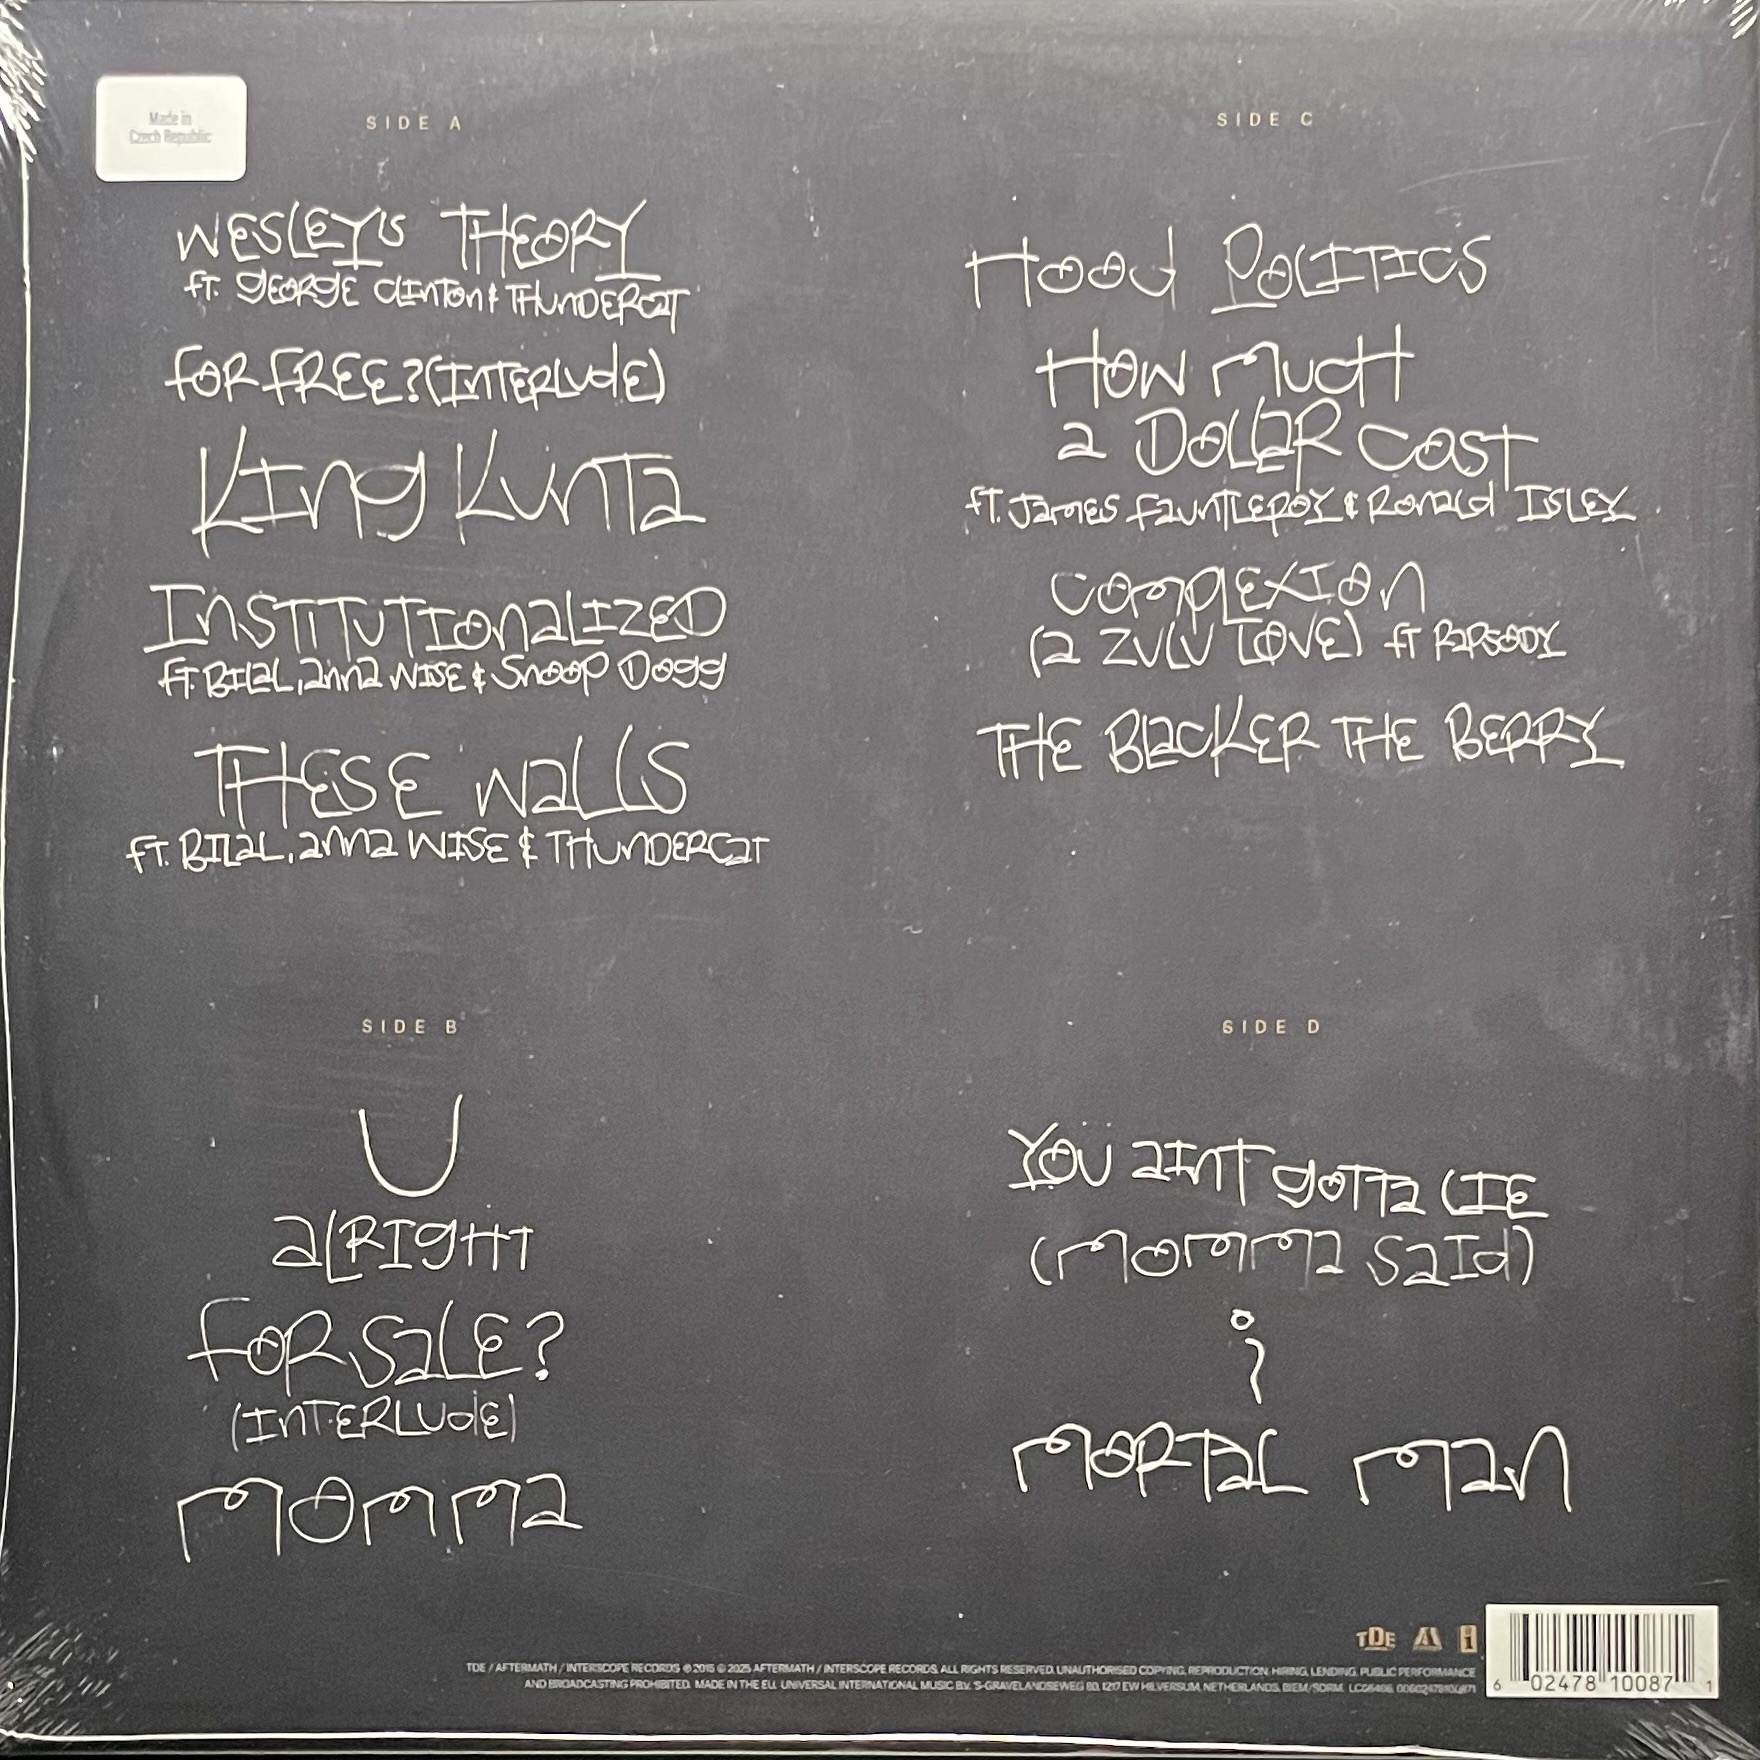 Made in
Czech Republic
SIDE A
WESLEY'S THEORY
FT. GEORGE CLINTON & THUNDERCAT
FOR FREE? (INTERLUDE)
KING KUNTA
INSTITUTIONALIZED
FT. BILAL, ANNA WISE & SNOOP DOGG
THESE WALLS
FT. BILAL, ANNA WISE & THUNDERCAT
SIDE B
U
ALRIGHT
FOR SALE?
(INTERLUDE)
MOMMA
SIDE C
HOOD POLITICS
HOW MUCH
A DOLLAR COST
FT. JAMES FAUNTLEROY & RONALD ISLEY
COMPLEXION
(A ZULU LOVE) FT RAPSODY
THE BLACKER THE BERRY
SIDE D
YOU AINT GOTTA LIE
(MOMMA SAID)
i
MORTAL MAN
TDE
TDE / AFTERMATH / INTERSCOPE RECORDS ℗ 2015 © 2025 AFTERMATH / INTERSCOPE RECORDS. ALL RIGHTS RESERVED. UNAUTHORISED COPYING, REPRODUCTION, HIRING, LENDING, PUBLIC PERFORMANCE
AND BROADCASTING PROHIBITED. MADE IN THE EU. UNIVERSAL INTERNATIONAL MUSIC B.V. 'S-GRAVELANDSEWEG 80, 1217 EW HILVERSUM, NETHERLANDS. BIEM/SDRM. LC06406. 00602478100871
6 02478 10087 1